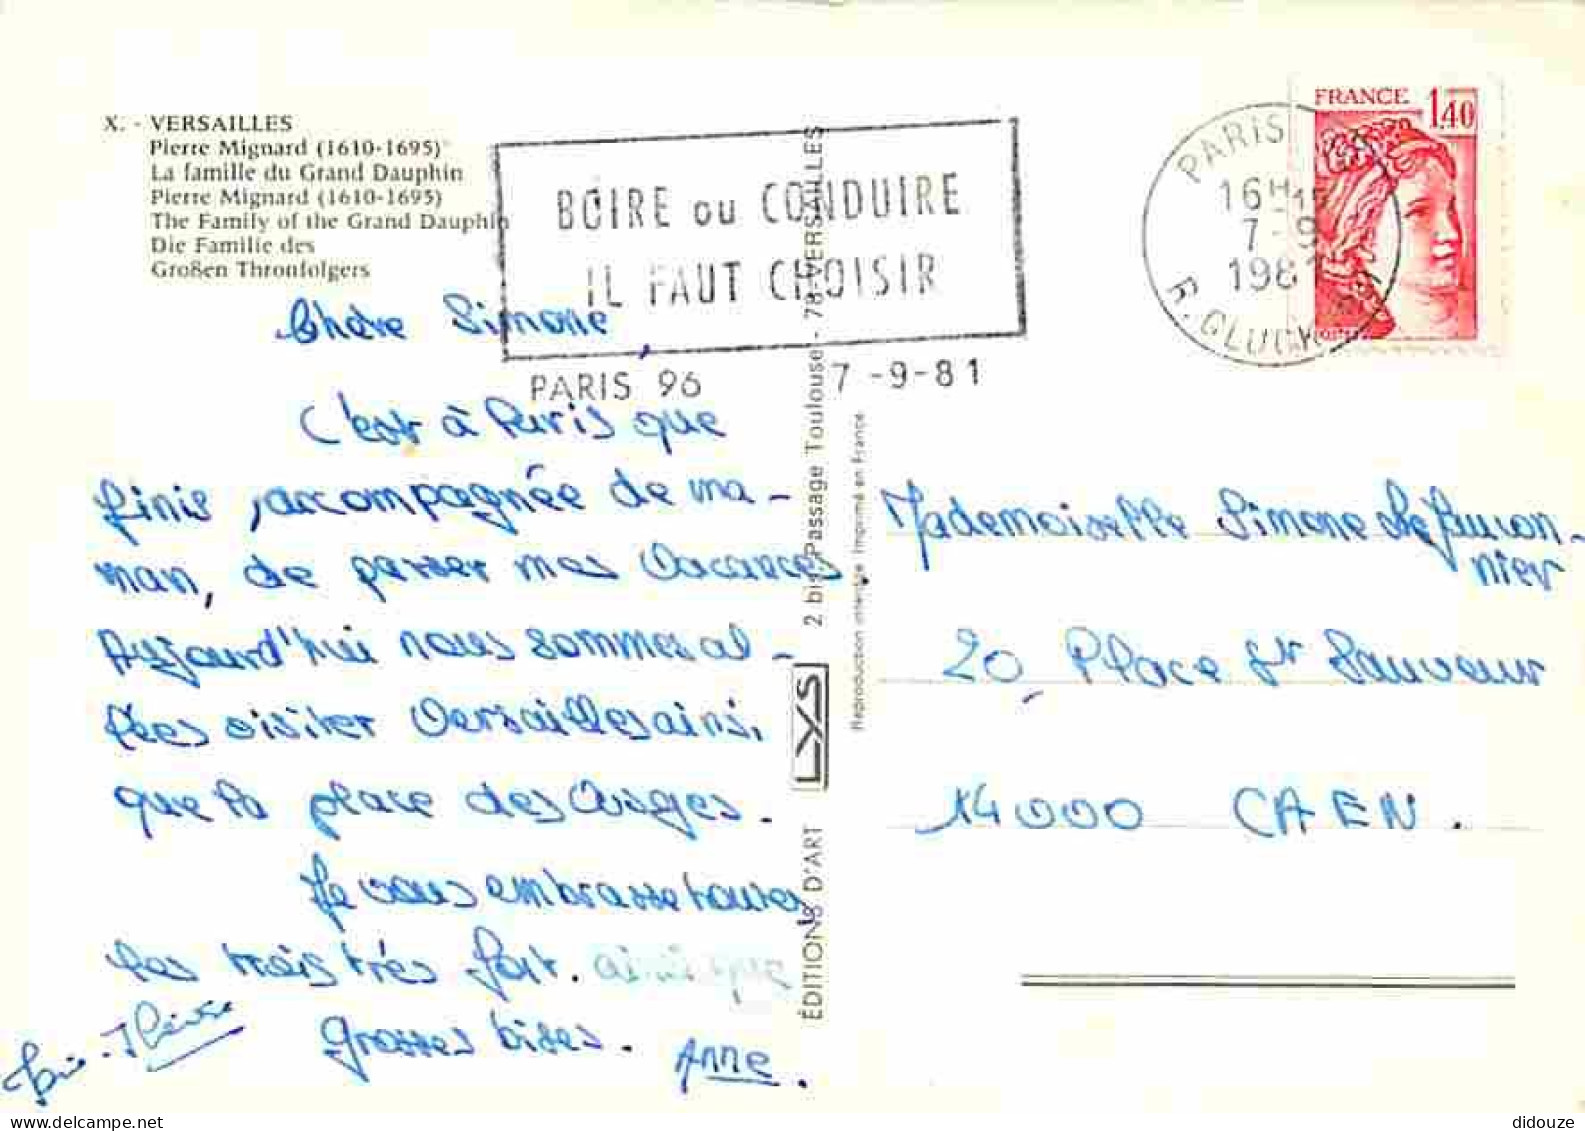 X. - VERSAILLES
Pierre Mignard (1610-1695)
La famille du Grand Dauphin
Pierre Mignard (1610-1695)
The Family of the Grand Dauphin
Die Familie des
Großen Thronfolgers
BOIRE ou CONDUIRE
IL FAUT CHOISIR
PARIS 96 7 -9-81
PARIS
16H15
7-9
198
R. GLUCK
FRANCE 1,40
Chère Simone,
C'est à Paris que
finis, accompagnée de ma-
man, de passer mes vacances.
Aujourd'hui nous sommes al-
lées visiter Versailles ainsi
que la place des Vosges.
Je vous embrasse toutes
les trois très fort. ainsi que
Grosses bises.
Anne.
Mademoiselle Simone Le
nier
20, Place St Sauveur
14000 CAEN.
ÉDITIONS D'ART LYS 2 bis, Passage Toulouse - 78-VERSAILLES
Reproduction interdite Imprimé en France
didouze